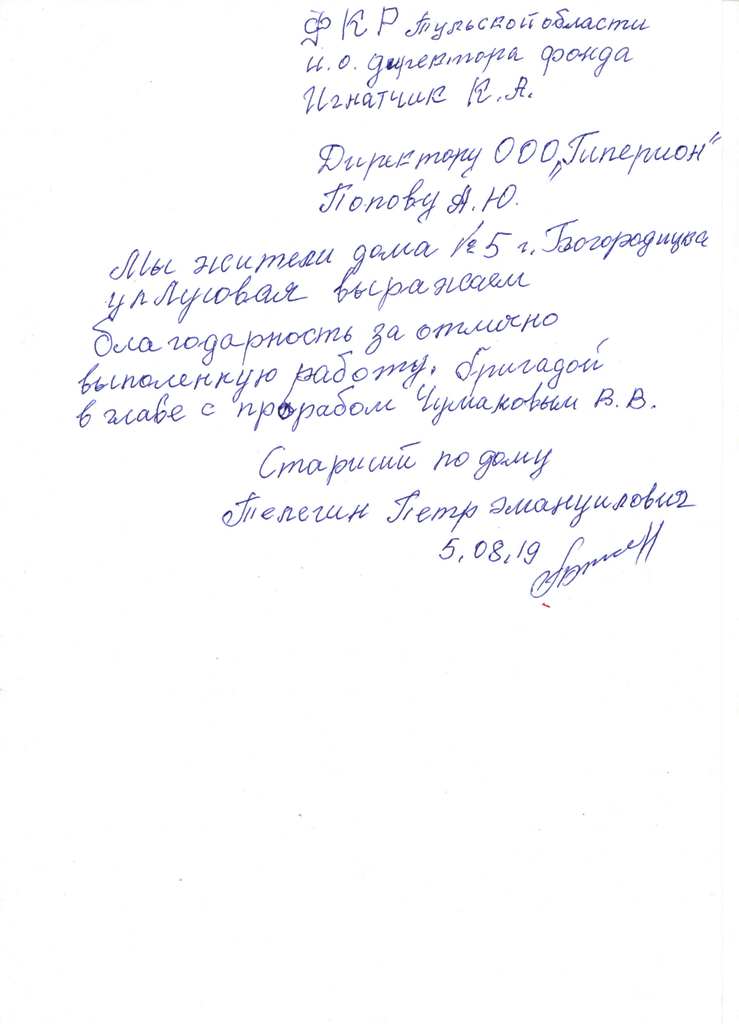 ФКР Тульской области
и.о. директора фонда
Игнатчик К.А.
Директору ООО „Гиперион"
Попову А.Ю.
Мы жители дома №5 г. Богородицка
ул Луговая выражаем
благодарность за отлично
выполенную работу. бригадой
в главе с прорабом Чумаковым В.В.
Старший по дому
Телегин Петр Эмануилович
5,08,19